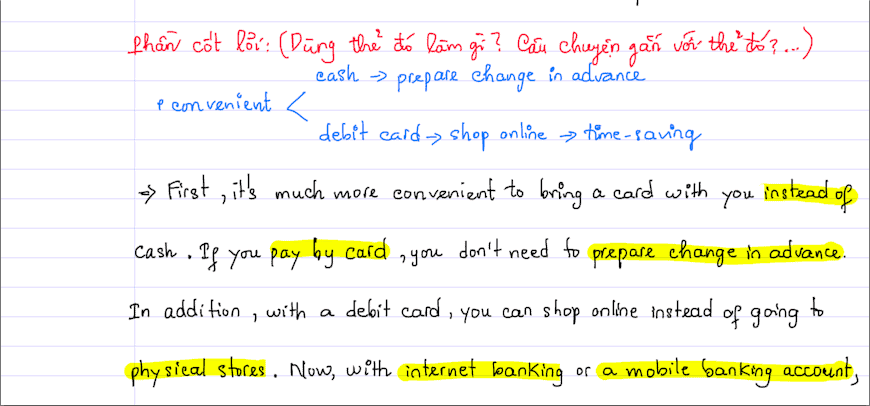 Phần cốt lõi: (Dùng thẻ đó làm gì? Câu chuyện gắn với thẻ đó?...)
cash → prepare change in advance
convenient
debit card → shop online → time-saving
→ First, it's much more convenient to bring a card with you instead of
cash. If you pay by card, you don't need to prepare change in advance.
In addition, with a debit card, you can shop online instead of going to
physical stores. Now, with internet banking or a mobile banking account,